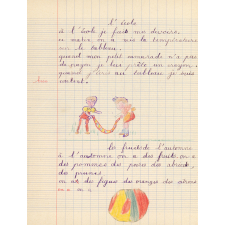 L'école
à l'école je fait mes devoirs
ce matin on a mis la température
sur le tableau.
quand mon petit camarade n'a pas
de crayon je lui prête un crayon.
quand j'irais au tableau je suis
content.
Les fruits de l'automne
à l'automne on a des fruits on a
des pommes des poires des abricots,
des prunes
on a des figues du raisin des